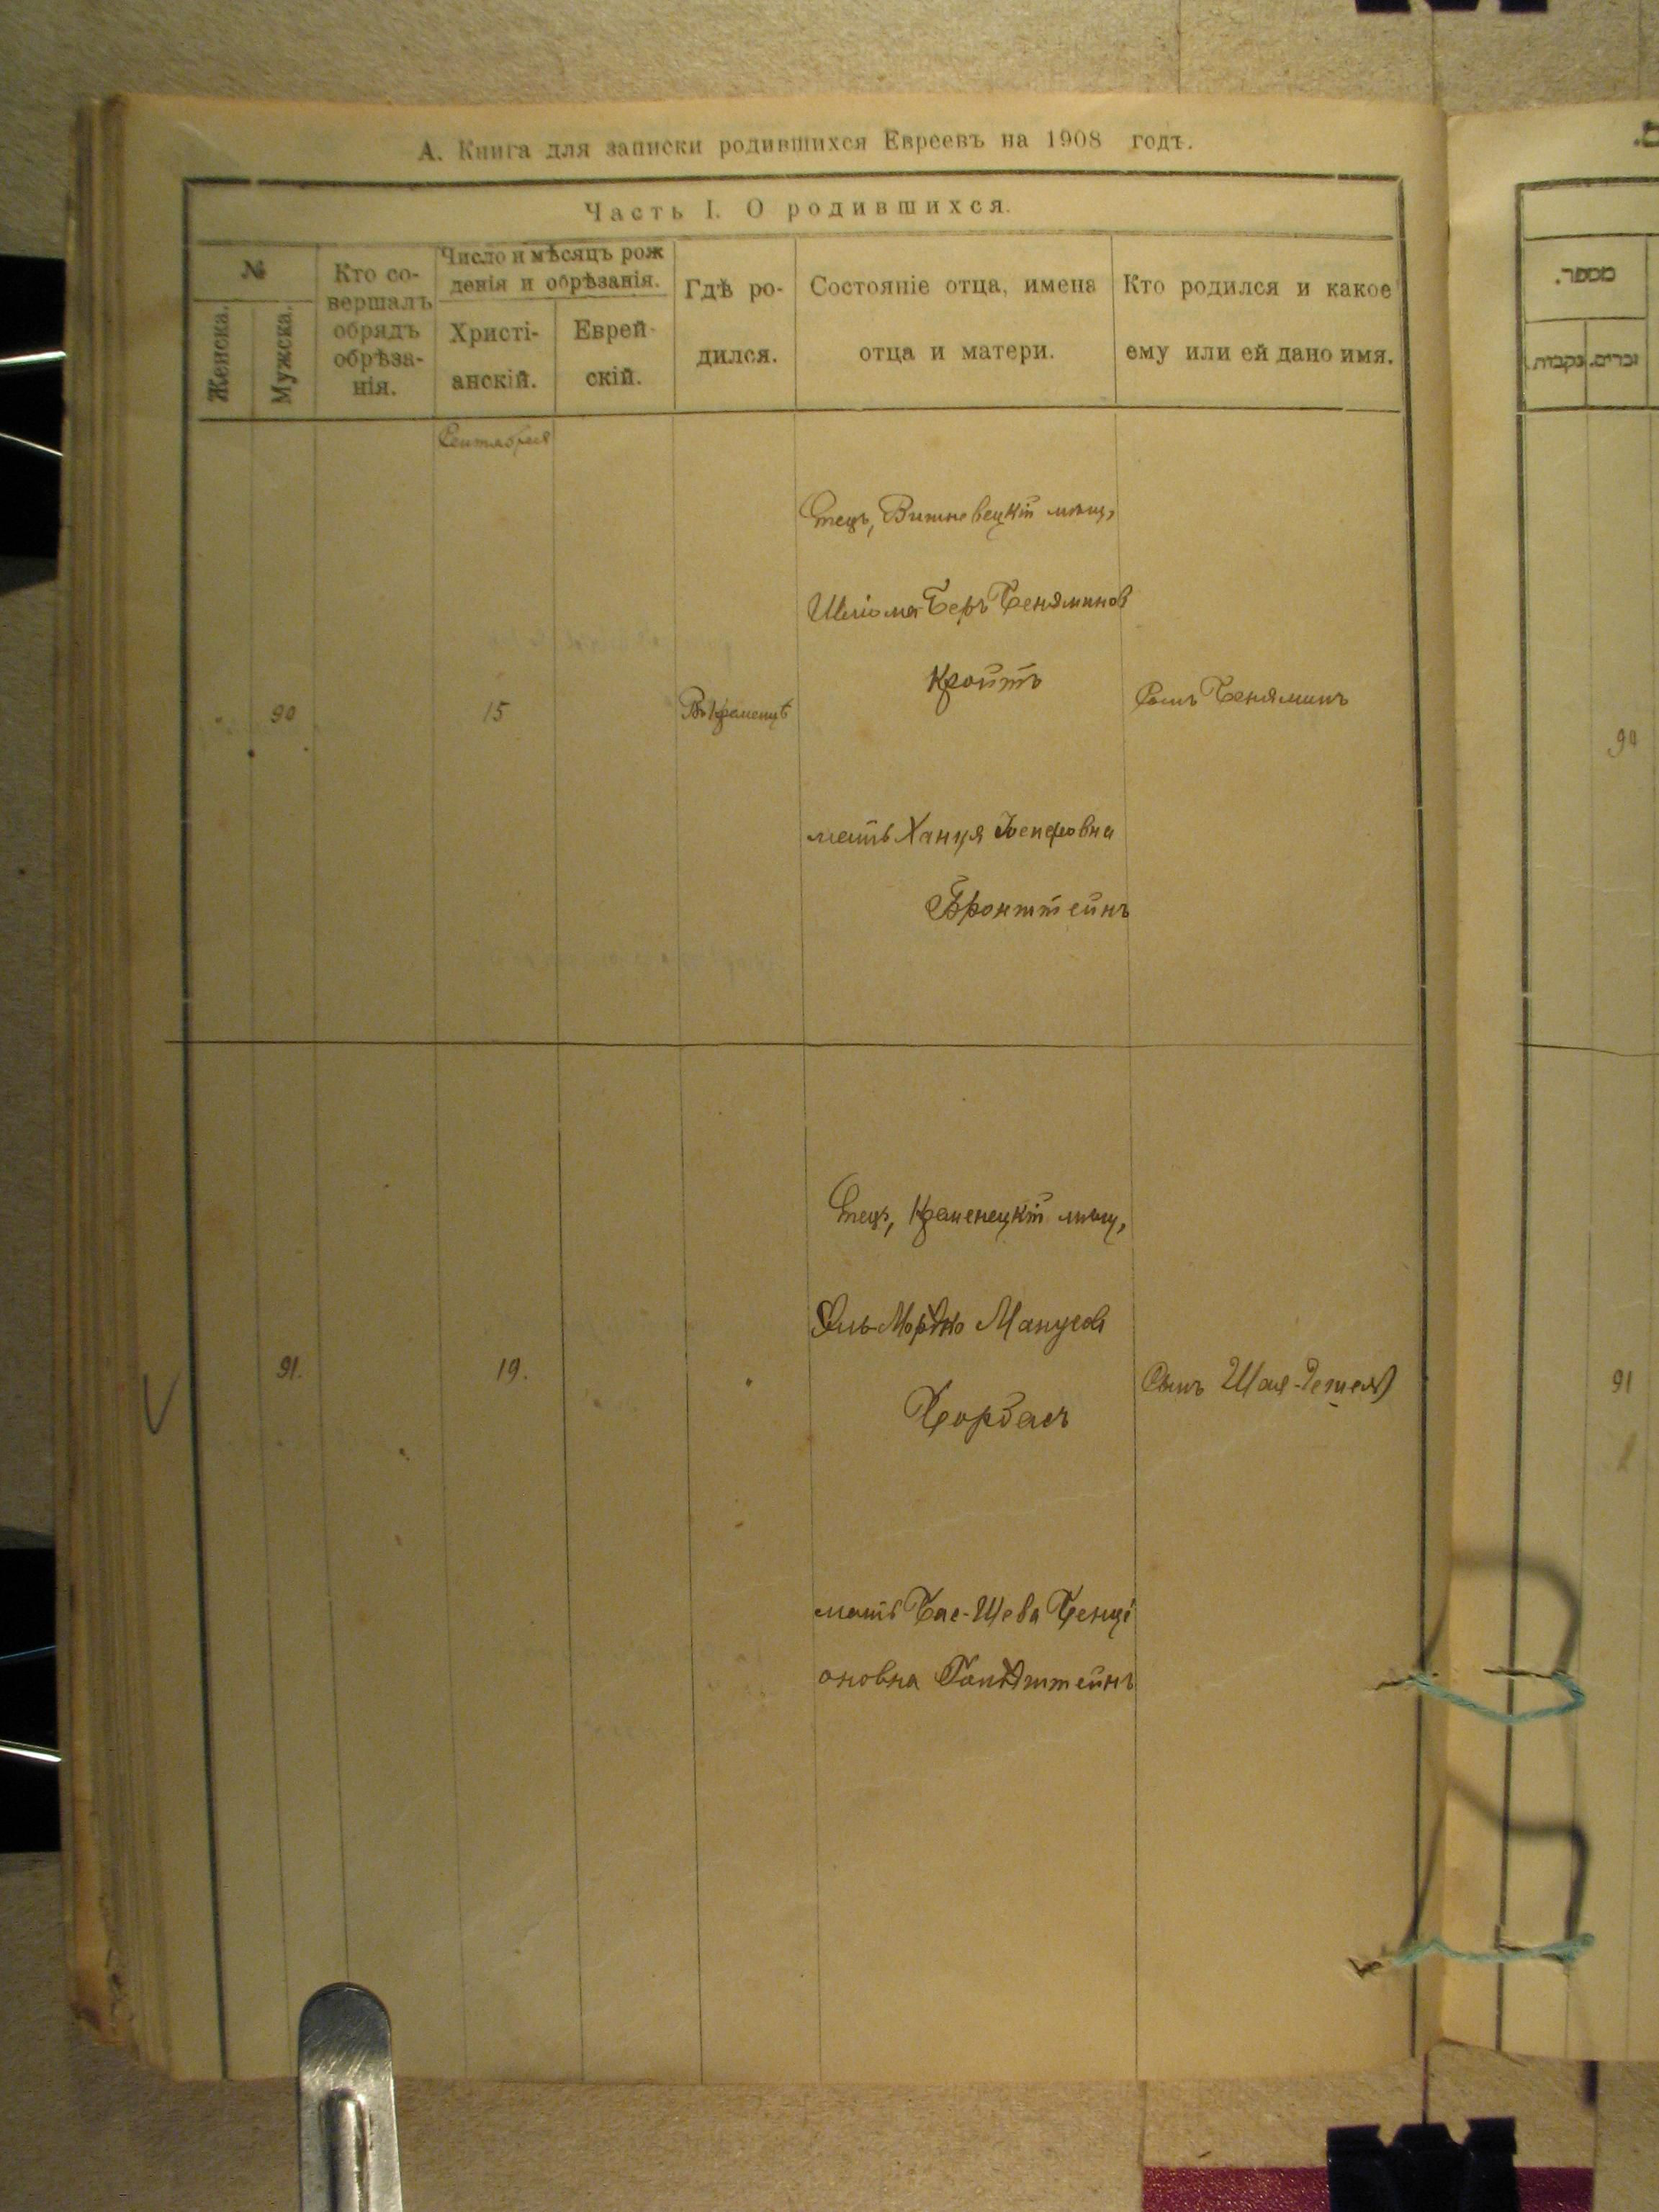 А. Книга для записки родившихся Евреевъ на 1908 годъ.
Часть I. О родившихся.
№
Женска.
Мужска.
Кто со-
вершалъ
обрядъ
обрѣза-
нія.
Число и мѣсяцъ рож
денія и обрѣзанія.
Христі-
анскій.
Еврей-
скій.
Гдѣ ро-
дился.
Состояніе отца, имена
отца и матери.
Кто родился и какое
ему или ей дано имя.
Сентября
90
15
Въ Кременцѣ
Отецъ, Вишневецкій мѣщ,
Шліома Беръ Беняминов
Кройтъ
мать Ханця Іосифовна
Бронштейнъ
Сынъ Беняминъ
91.
19.
Отецъ, Кременецкій мѣщ,
Мордко
Хорбасъ
мать Бас-Шева Бенці
оновна
Сынъ Шая-
מספר.
נקבות.
זכרים.
90
91